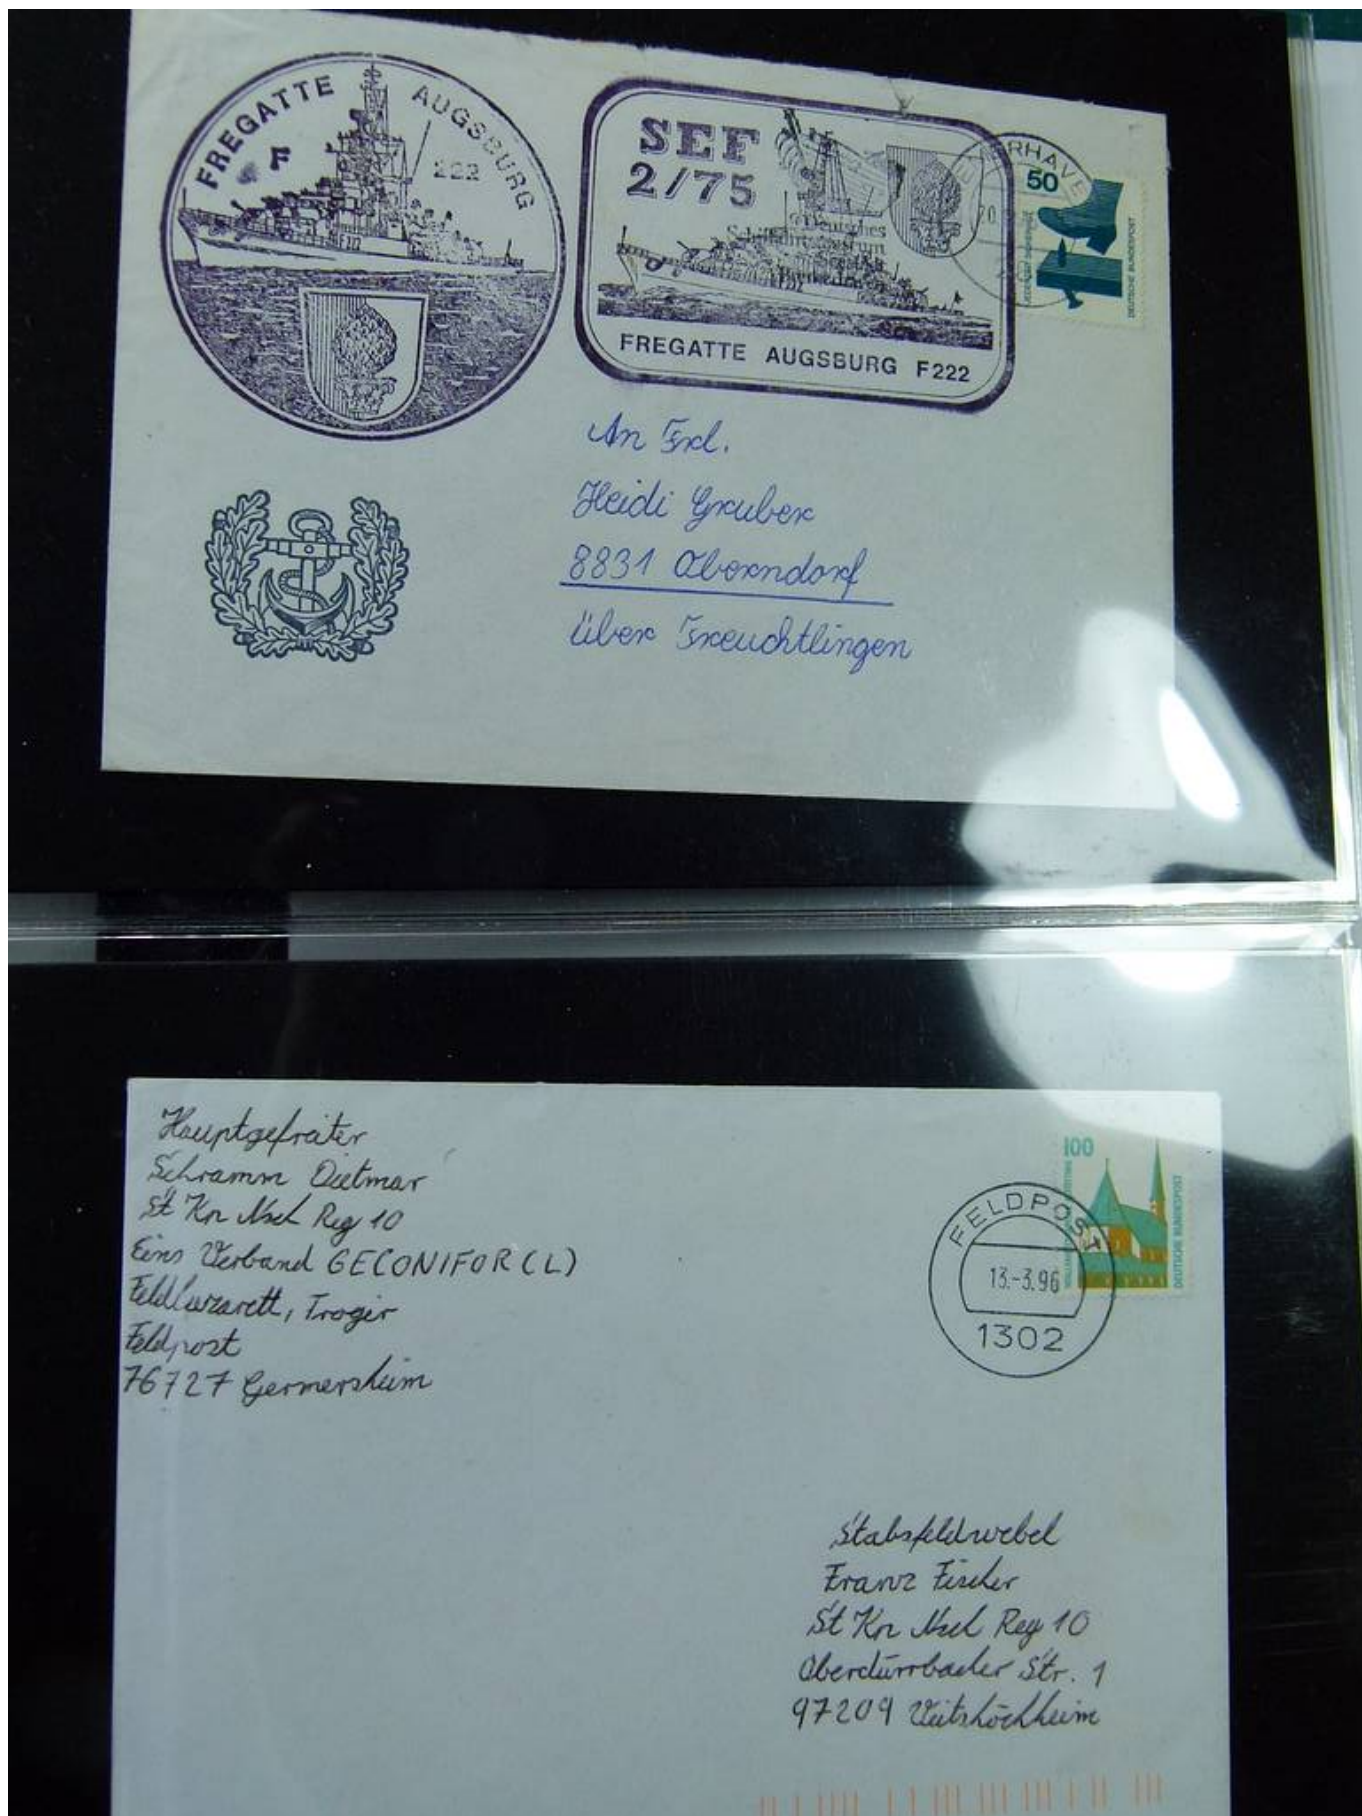 FREGATTE AUGSBURG
F 222
SEF
2/75
Deutsches
FREGATTE AUGSBURG F222
RHAVE
50
DEUTSCHE BUNDESPOST
An Frl.
Heidi Gruber
8831 Oberndorf
über Treuchtlingen
Hauptgefreiter
Schramm Dietmar
St Kp Nsch Reg 10
Eins Verband GECONIFOR (L)
Feldlazarett, Trogir
Feldpost
76727 Germersheim
100
DEUTSCHE BUNDESPOST
FELDPOST
13.-3.96
1302
Stabsfeldwebel
Franz Fischer
St Kp Nsch Reg 10
Oberdürrbacher Str. 1
97209 Veitshöchheim